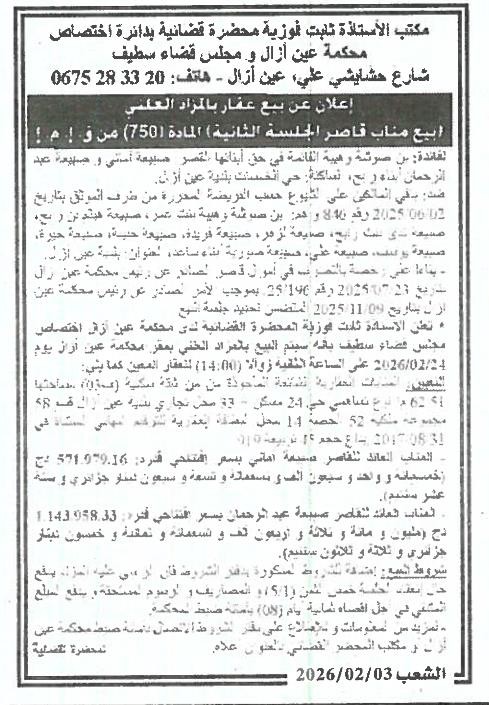 مكتب الأستاذة ثابت فوزية محضرة قضائية بدائرة اختصاص
محكمة عين أزال و مجلس قضاء سطيف
شارع حشايشي علي، عين أزال - هاتف: 20 33 28 0675
إعلان عن بيع عقار بالمزاد العلني
(بيع مناب قاصر الجلسة الثانية) المادة (750) من ق إ م إ
لفائدة: بن صوشة وهيبة القائمة في حق أبنائها القصر صبيعة أماني و صبيعة عبد
الرحمان أبناء رابح، الساكنة: حي الخمسات بلدية عين أزال.
ضد: باقي المالكين على الشيوع حسب الفريضة المحررة من طرف الموثق بتاريخ
2025/06/02 رقم 846 وهم: بن صوشة وهيبة بنت عمر، صبيعة هيثم بن رابح،
صبيعة ندى بنت رابح، صبيعة لزهر، صبيعة فريدة، صبيعة حنية، صبيعة
صبيعة يوسف، صبيعة علي، صبيعة صورية أبناء ساعد، العنوان: بلدية عين أزال.
- بناءا على رخصة بالتصرف في أموال قاصر الصادر عن رئيس محكمة عين أزال
بتاريخ 2025/07/23 رقم 25/196، بموجب الأمر الصادر عن رئيس محكمة عين
أزال بتاريخ 2025/11/09 المتضمن تحديد جلسة البيع
• تعلن الأستاذة ثابت فوزية المحضرة القضائية لدى محكمة عين أزال اختصاص
مجلس قضاء سطيف بأنه سيتم البيع بالمزاد العلني بمقر محكمة عين أزال يوم
2026/02/24 على الساعة الثانية زوالا (14:00) للعقار المعين كما يلي:
التعيين: المنابات العقارية الشائعة المأخوذة من من قطعة سكنية مساحتها
62.51 م حي 24 مسكن - 33 محل تجاري بلدية عين أزال قسم 58
مجموعة ملكية 52 الحصة 14 محل
2017/08/31 حجم 45 تربيعة 919
- المناب العائد للقاصر صبيعة أماني بسعر إفتتاحي قدره: 571.979.16 دج
(خمسمائة و واحد و سبعون ألف و تسعمائة و تسعة و سبعون دينار جزائري و ستة
عشر سنتيم).
- المناب العائد للقاصر صبيعة عبد الرحمان بسعر إفتتاحي قدره: 1.143.958.33
دج (مليون و مائة و ثلاثة و أربعون ألف و تسعمائة و ثمانية و خمسون دينار
جزائري و ثلاثة و ثلاثون سنتيم).
شروط البيع: إضافة للشروط المذكورة بدفتر الشروط فإن الراسي عليه المزاد يدفع
حال إنعقاد الجلسة خمس الثمن (5/1) و المصاريف و الرسوم المستحقة و يدفع المبلغ
المتبقي في أجل أقصاه ثمانية أيام (08) بأمانة ضبط المحكمة.
- لمزيد من المعلومات و الإطلاع على دفتر الشروط الاتصال بأمانة ضبط محكمة عين
أزال و مكتب المحضر القضائي بالعنوان أعلاه.
المحضرة القضائية
الشعب 2026/02/03